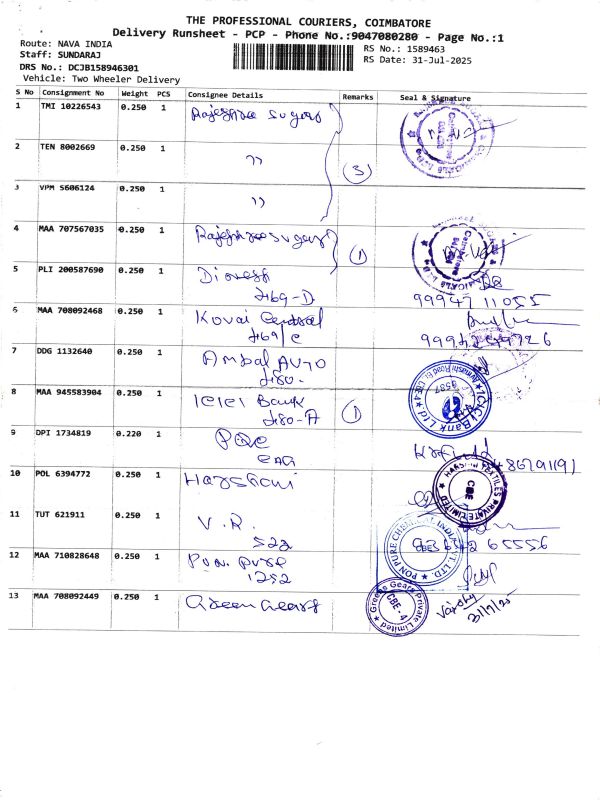 THE PROFESSIONAL COURIERS, COIMBATORE
Delivery Runsheet - PCP - Phone No.:9047080280 - Page No.:1
Route: NAVA INDIA
Staff: SUNDARAJ
DRS No.: DCJB158946301
Vehicle: Two Wheeler Delivery
RS No.: 1589463
RS Date: 31-Jul-2025
S No Consignment No Weight PCS Consignee Details Remarks Seal & Signature
1 TMI 10226543 0.250 1 Rajeshree sugars
2 TEN 8002669 0.250 1 " (3)
3 VPM 5606124 0.250 1 "
4 MAA 707567035 0.250 1 Rajeshree sugars (1)
5 PLI 200587690 0.250 1
99947 11055
6 MAA 708092468 0.250 1 Kovai Central
7 DDG 1132640 0.250 1 Ambal Auto
8 MAA 945583904 0.250 1 ICICI Bank (1)
ICICI Bank Ltd
9 DPI 1734819 0.220 1
10 POL 6394772 0.250 1 Harshani
TEXTILES PRIVATE LIMITED
CBE
11 TUT 621911 0.250 1 V.R.
522
12 MAA 710828648 0.250 1 Pon. Pure
1252
PON PURE CHEMICAL INDIA PVT. LTD.
13 MAA 708092449 0.250 1 Green Gears
Greens Gears Private Limited
CBE-4
31/7/25